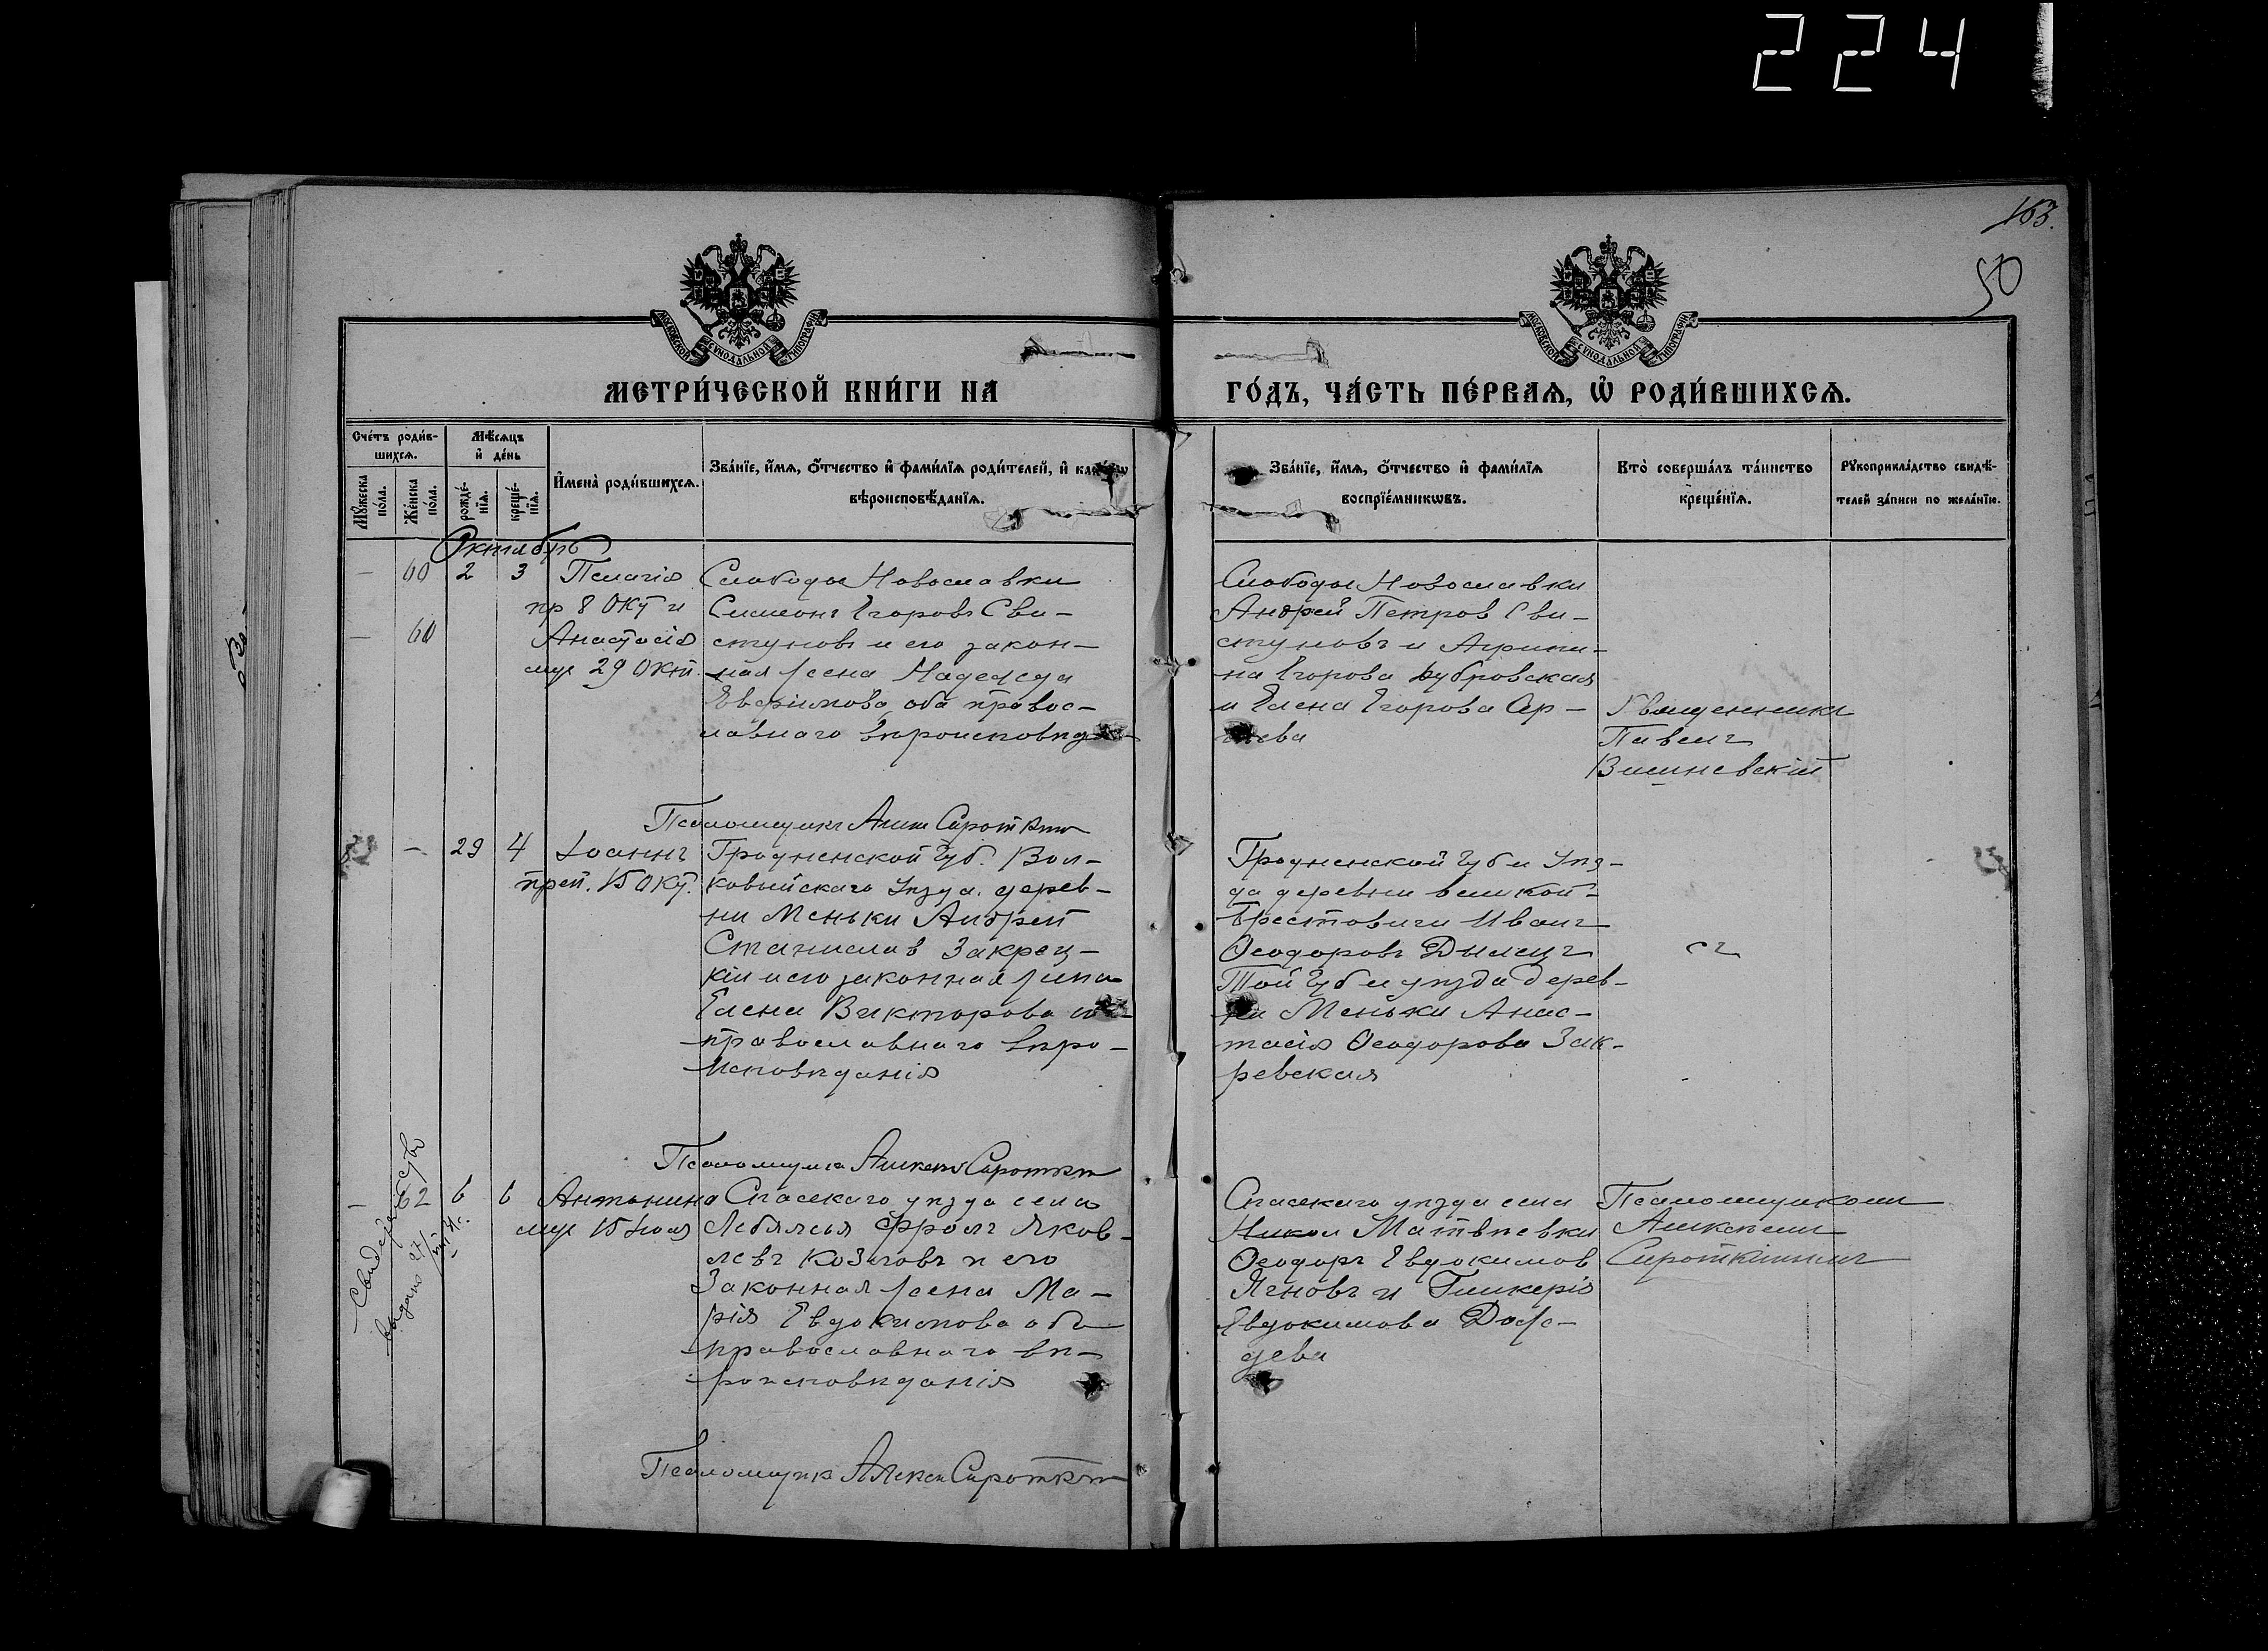 224
163.
50
МОСКОВСКОЙ СѴНОДАЛЬНОЙ ТИПОГРАФІИ
МОСКОВСКОЙ СѴНОДАЛЬНОЙ ТИПОГРАФІИ
МЕТРИ́ЧЕСКОЙ КНИ́ГИ НА
ГО́ДЪ, ЧА́СТЬ ПЕ́РВАЯ, Ѡ҆ РОДИ́ВШИХСЯ.
Сче́тъ роди́в-
шихся.
Мѣ́сяцъ
и҆ де́нь
Мꙋ́жеска
по́ла.
Же́нска
по́ла.
рожде́-
нїя.
креще́-
нїя.
И҆мена̀ роди́вшихся.
Зва́нїе, и҆́мя, ѻ҆́тчество и҆ фами́лїя роди́телей, и҆
вѣроисповѣ́данїя.
Зва́нїе, и҆́мя, ѻ҆́тчество и҆ фами́лїя
воспрїе́мникѡвъ.
Кто̀ соверша́лъ та́инство
креще́нїя.
Рꙋкоприкла́дство свидѣ́-
телей за́писи по жела́нїю.
Октябрь
— 60 2 3 Пелагія
пр 8 Окт и
— 60 Анастасія
муч 29 Окт.
Слободы Новославки
Симеонъ Егоровъ Сви-
стуновъ и его закон-
ная жена Надежда
Евфимова, оба правос-
лавнаго
Слободы Новославки
Андрей Петров Сви-
стуновъ и Агрипи-
на Егорова Дубровская
и Елена Егорова
Священникъ
Павелъ
Вишневскій
Псаломщикъ Сироткин
— 29 4 Іоаннъ
преп. 15 Окт.
Гродненской Губ. Вол-
ковыйскаго уѣзда, дерев-
ни Меньки Андрей
Станислав Закрец-
кій и его законная жена
Елена Викторова
православнаго вѣро-
исповѣданія
Гродненской Губ и Уѣз-
да деревни великой-
Брестовичи Иванъ
Ѳеодоровъ
Той Губ и уѣзда дерев-
ни Меньки Анас-
тасія Ѳеодорова Зак-
ревская
Псаломщикъ Алексѣй Сироткин
— 62 6 6 Антонина
муч
Свидѣтельство
выдано
Спасскаго уѣзда села
Лебяжья Фролъ Яков-
левъ Козловъ и его
Законная жена Ма-
рія Евдокимова оба
православнаго вѣ-
роисповѣданія
Спасскаго уѣзда села
Матвѣевки
Ѳеодоръ Евдокимов
и Гликерія
Евдокимова
Псаломщикомъ
Алексѣемъ
Сироткинымъ
Псаломщикъ Алексѣй Сироткин